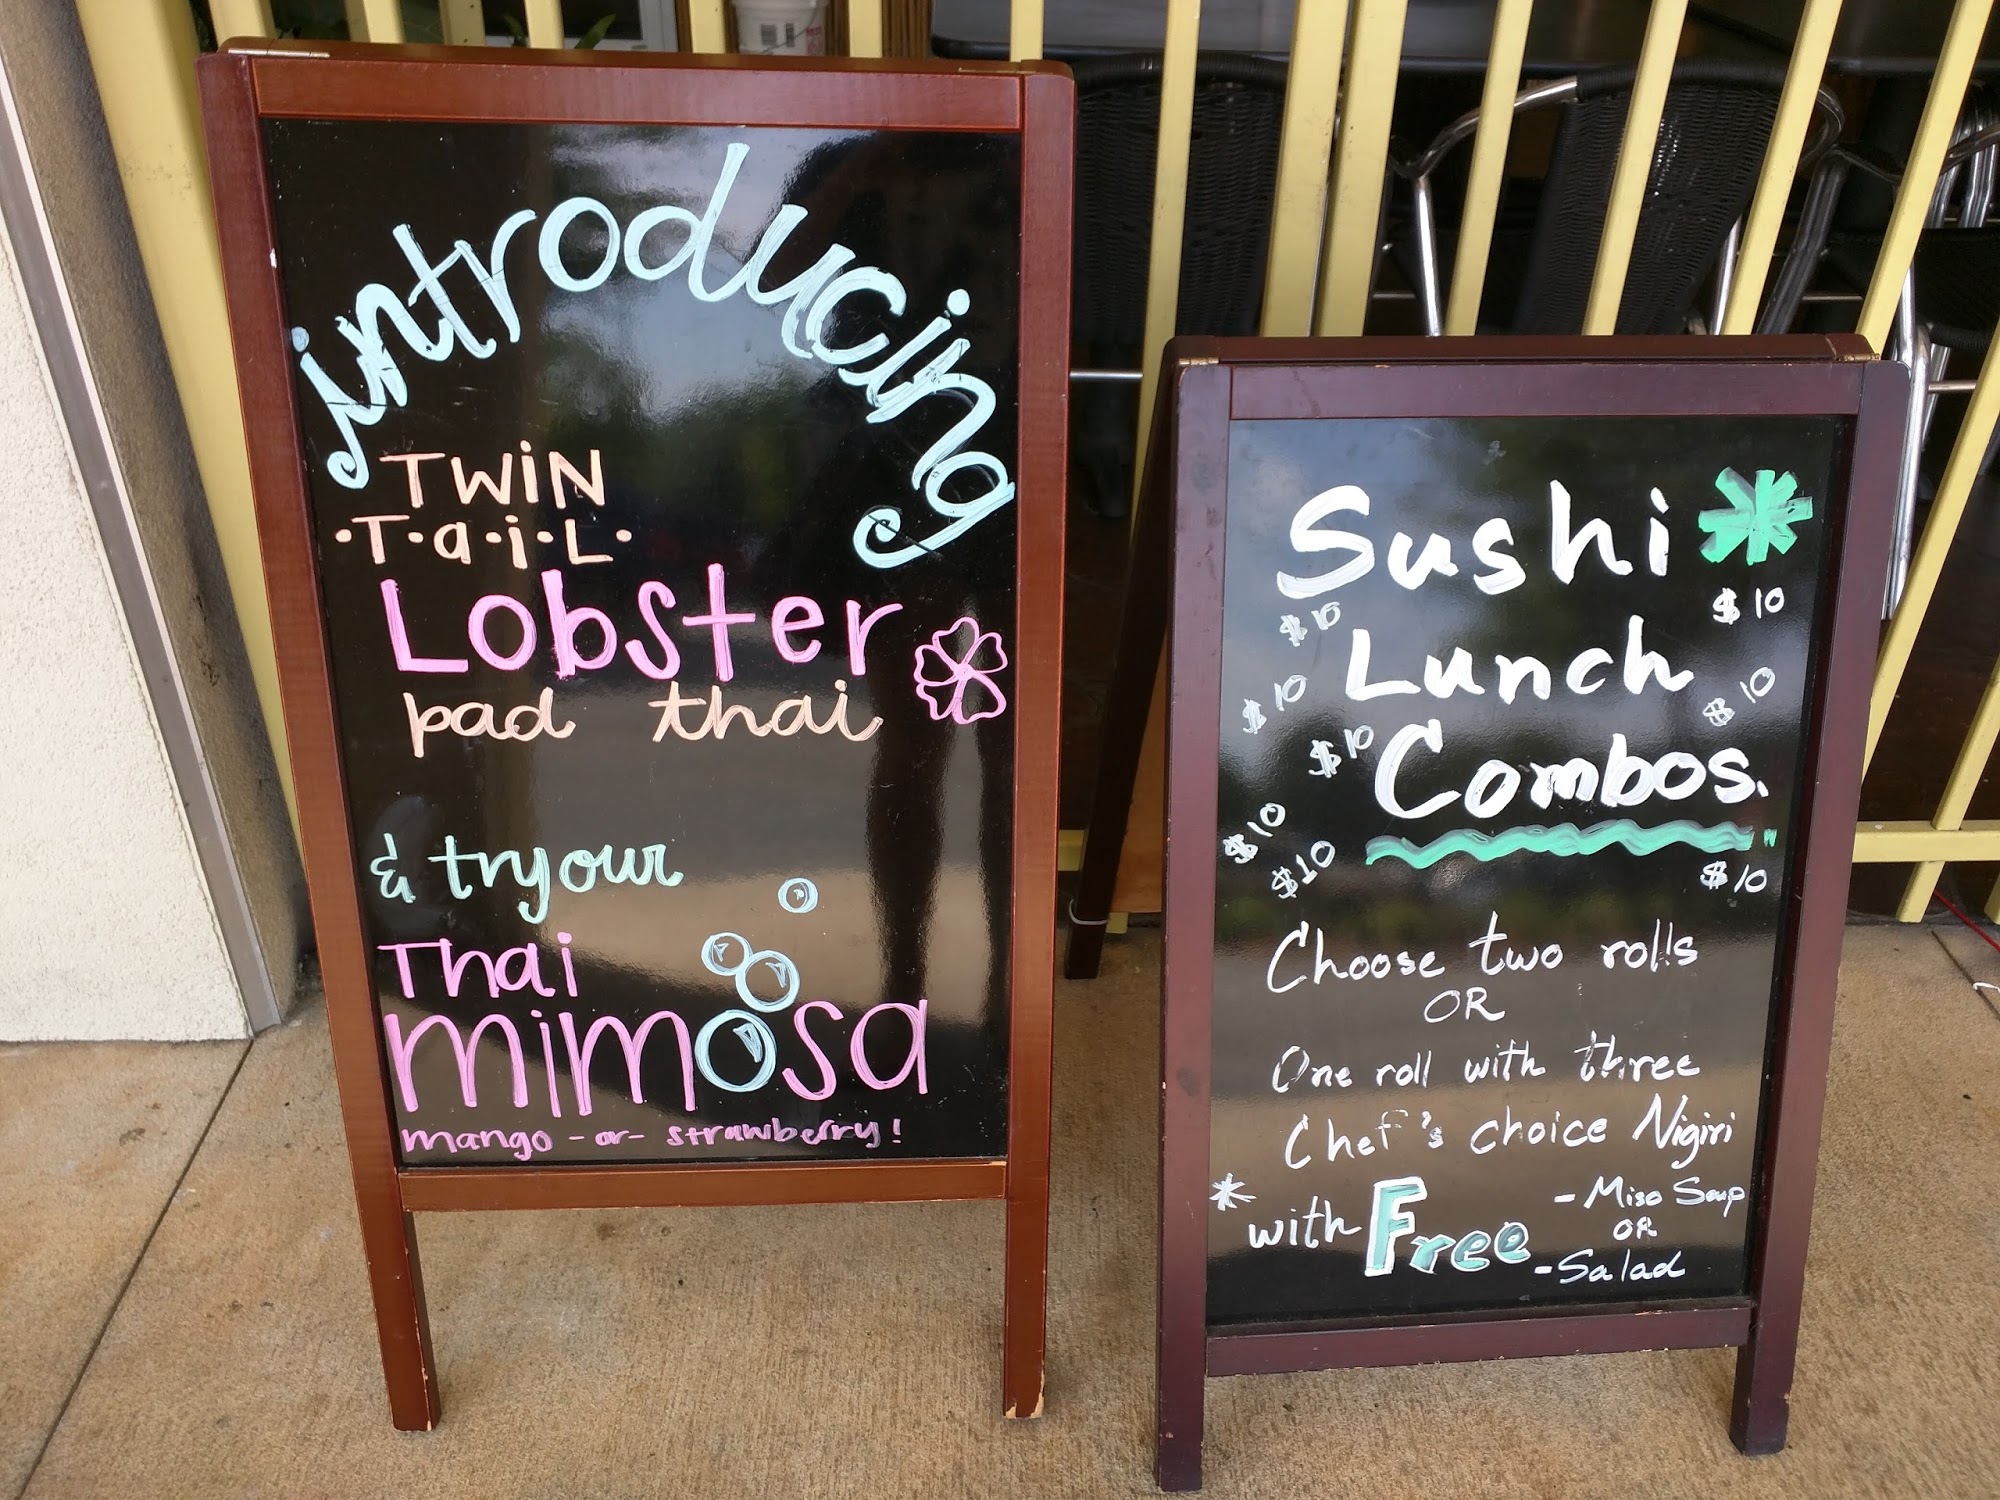 introducing
TWiN
·T·a·i·L·
Lobster
pad thai
& try our
Thai
mimosa
mango -or- strawberry!
Sushi
$10
$10
Lunch
$10
$10
$10
Combos.
$10
$10
$10
Choose two rolls
OR
One roll with three
Chef's choice Nigiri
* with Free
- Miso Soup
OR
- Salad